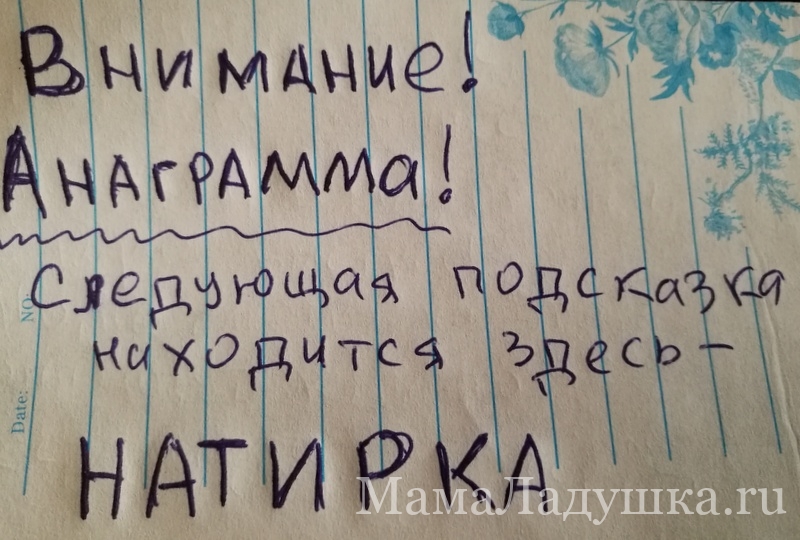 Внимание!
Анаграмма!
Следующая подсказка
находится здесь-
НАТИРКА
МамаЛадушка.ru
NO:
Date: